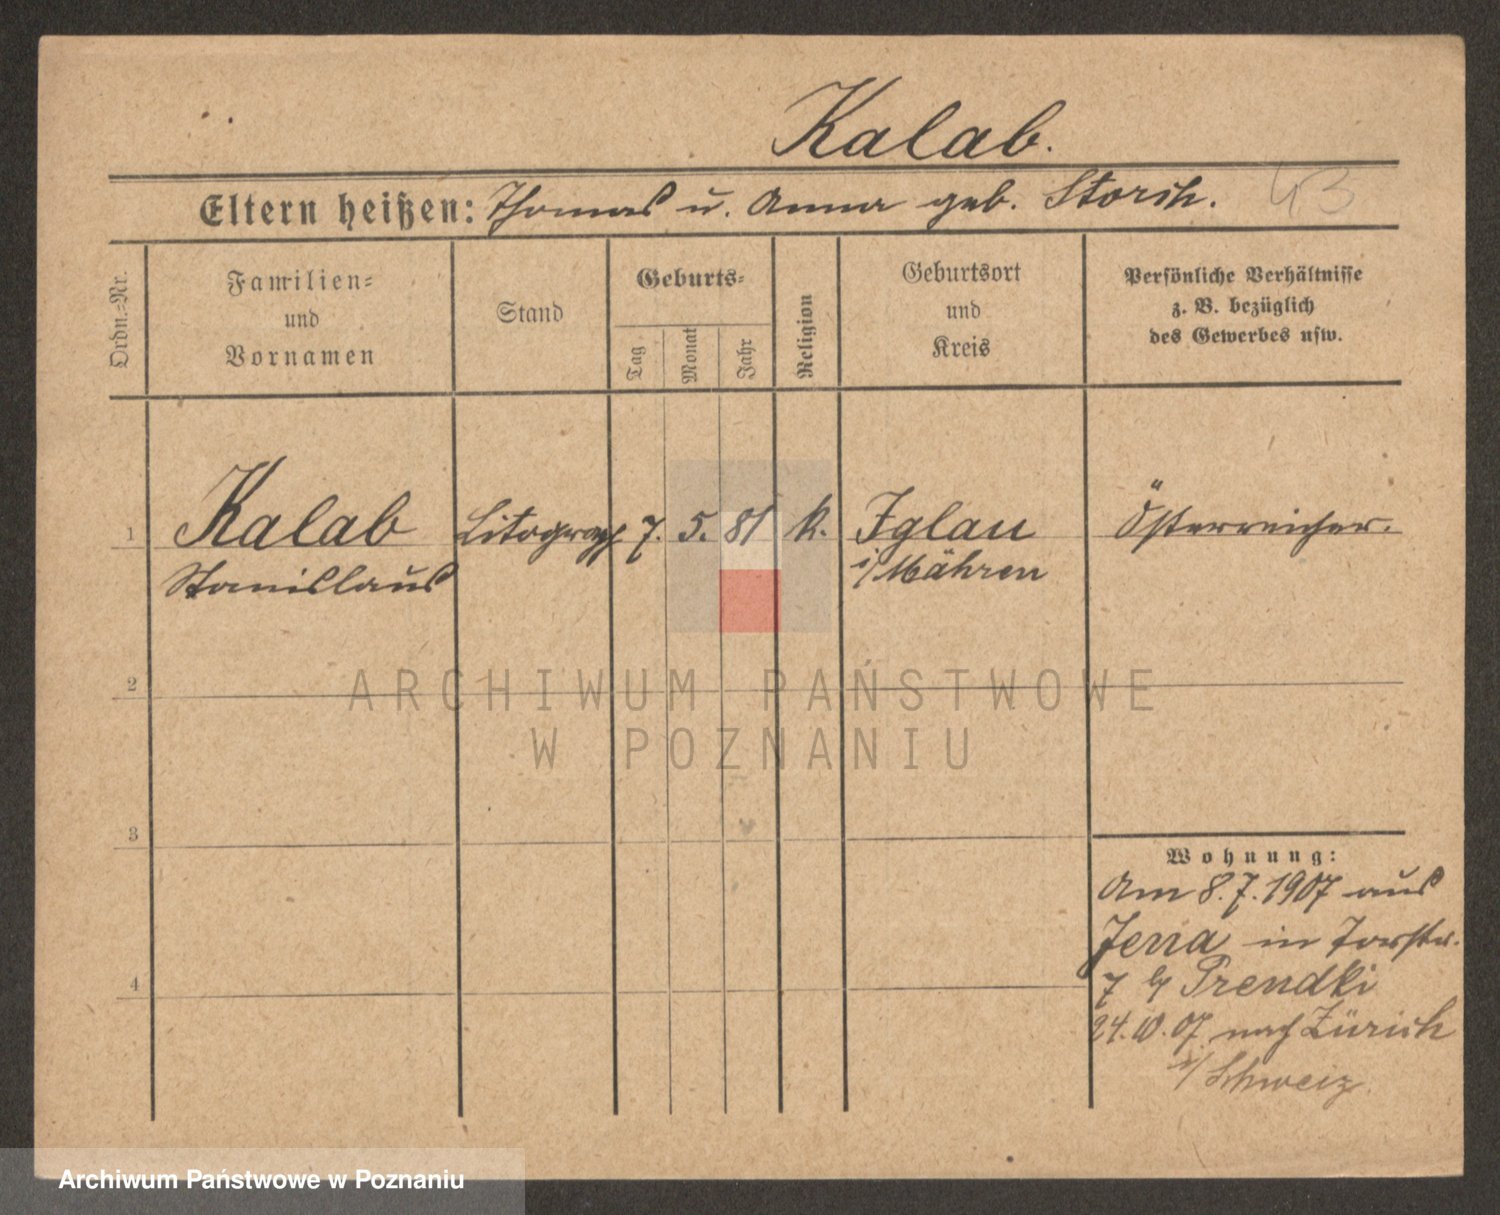 Kalab.
Eltern heißen: Thomas u. Anna geb. Storch. 43
Ordn.-Nr.
Familien-
und
Vornamen
Stand
Geburts-
Tag
Monat
Jahr
Religion
Geburtsort
und
Kreis
Persönliche Verhältnisse
z. B. bezüglich
des Gewerbes usw.
1 Kalab Litograph 7. 5. 81 k. Iglau Österreicher.
Stanislaus i/Mähren
2
ARCHIWUM PAŃSTWOWE
W POZNANIU
3
Wohnung:
Am 8.7.1907 aus
Jena in Torstr.
7 b/ Prendki
4
24.10.07 nach Zürich
i/Schweiz.
Archiwum Państwowe w Poznaniu